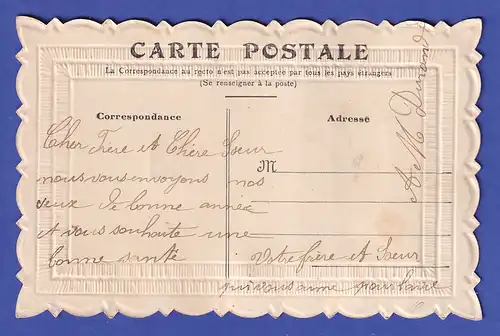 CARTE POSTALE
La Correspondance au recto n'est pas acceptée par tous les pays étrangers
(Se renseigner à la poste)
Correspondance
Adresse
M
Cher Frère et Chère Sœur
nous vous envoyons nos
veux de bonne année
et vous souhaite une
bonne santé
Votre frère et Sœur
qui vous aime pour
A M Durand